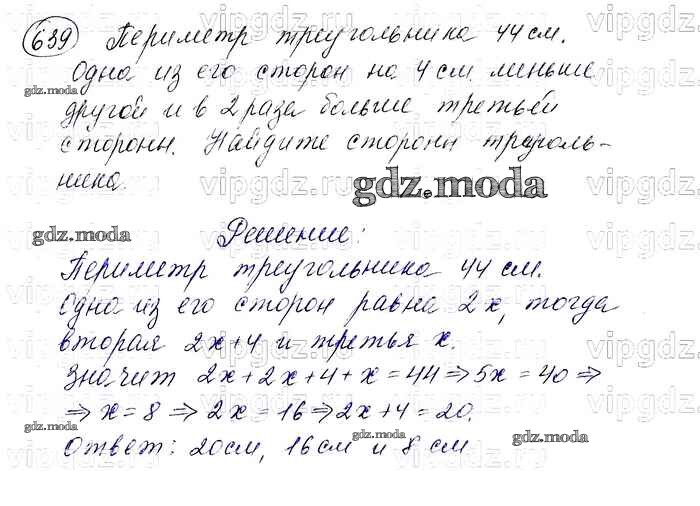 639 Периметр треугольника 44 см.
Одна из его сторон на 4 см меньше
gdz.moda
другой и в 2 раза больше третьей
стороны. Найдите стороны треуголь-
ника.
gdz.moda
gdz.moda
Решение:
Периметр треугольника 44 см.
Одна из его сторон равна 2x, тогда
вторая 2x+4 и третья x.
Значит 2x+2x+4+x=44⇒5x=40⇒
⇒ x=8 ⇒ 2x=16⇒2x+4=20.
gdz.moda
Ответ: 20см, 16см и 8 см
gdz.moda
gdz.moda
vipgdz.ru